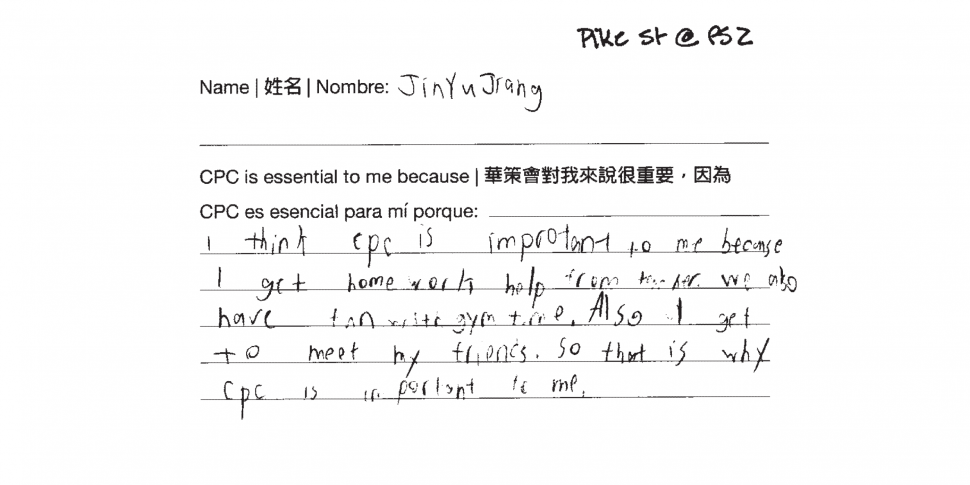 Pike St @ PS2
Name | 姓名 | Nombre: JinYu Jiang
CPC is essential to me because | 華策會對我來說很重要，因為
CPC es esencial para mí porque:
I think cpc is improtant to me because
I get home work help from we also
have fun with gym time. Also I get
to meet my friends. So that is why
Cpc is important to me.